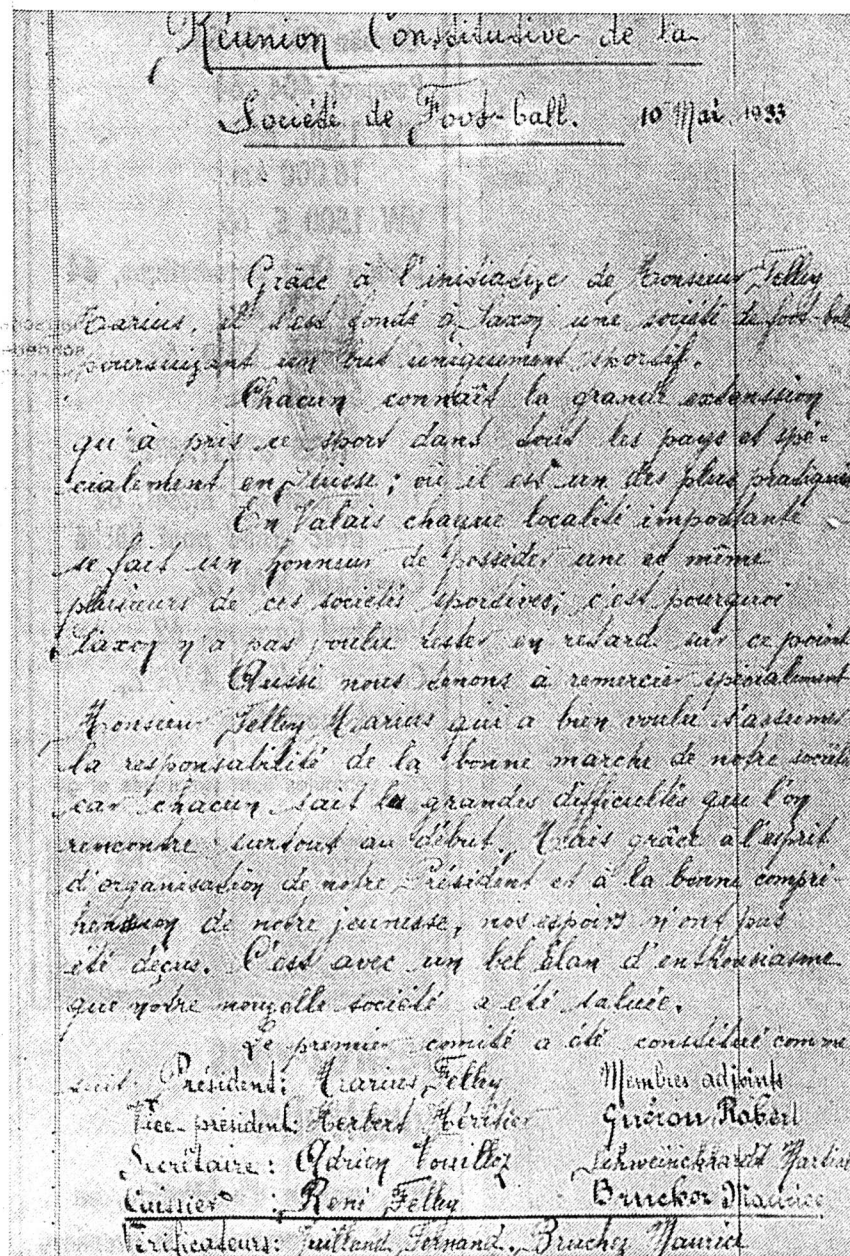 Réunion Constitutive de la
Société de Foot-ball. 10 Mai 1933
Grâce à l'initiative de Monsieur Felley
Marius, il s'est fondé à Saxon une société de foot-ball
poursuivant un but uniquement sportif.
Chacun connaît la grande extenssion
qu'à pris ce sport dans tout les pays et spé-
cialement en Suisse; où il est un des plus pratiqués
En Valais chaque localité importante
se fait un honneur de posséder une et même
plusieurs de ces sociétés sportives; c'est pourquoi
Saxon n'a pas voulu rester en retard sur ce point
Aussi nous tenons à remercier spécialement
Monsieur Felley Marius qui a bien voulu s'assumer
la responsabilité de la bonne marche de notre société
car chacun sait la grandes difficultés que l'on
rencontre surtout au début. Mais grâce a l'esprit
d'organisation de notre Président et à la bonne compré-
henssion de notre jeunesse, nos espoirs n'ont pas
été déçus. C'est avec un bel élan d'enthousiasme
que notre nouvelle société a été saluée.
Le premier comité a été constitué comme
suit: Président: Marius Felley Membres adjoints
Vice-président: Herbert Héritier Robert
Secrétaire: Adrien Vouilloz
Caissier: René Felley Maurice
Vérificateurs: Juilland Fernand, Bruchez Maurice